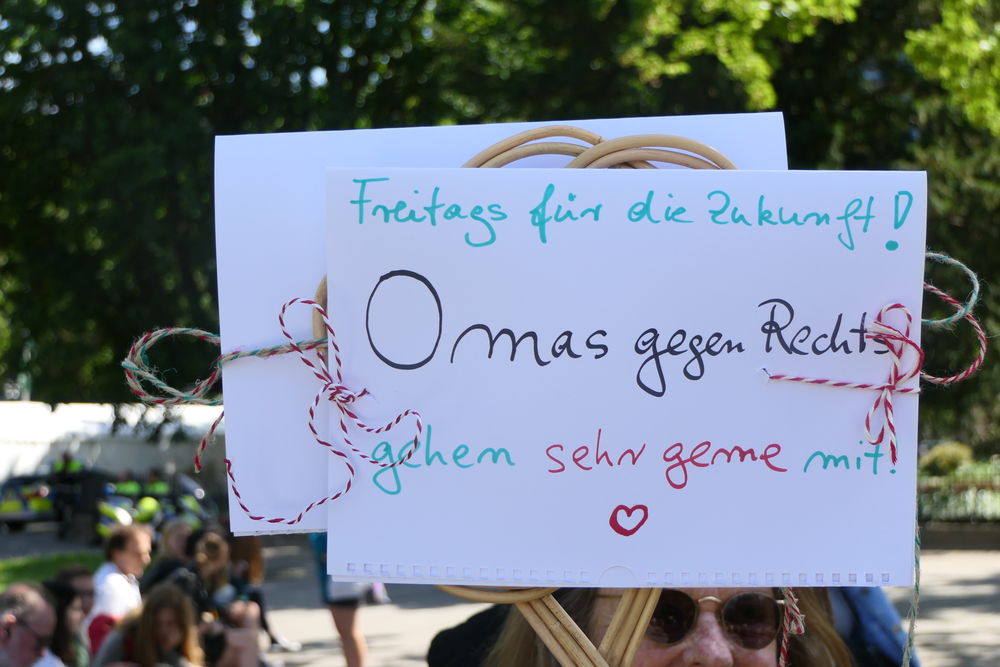 Freitags für die Zukunft!
Omas gegen Rechts
gehen sehr gerne mit!